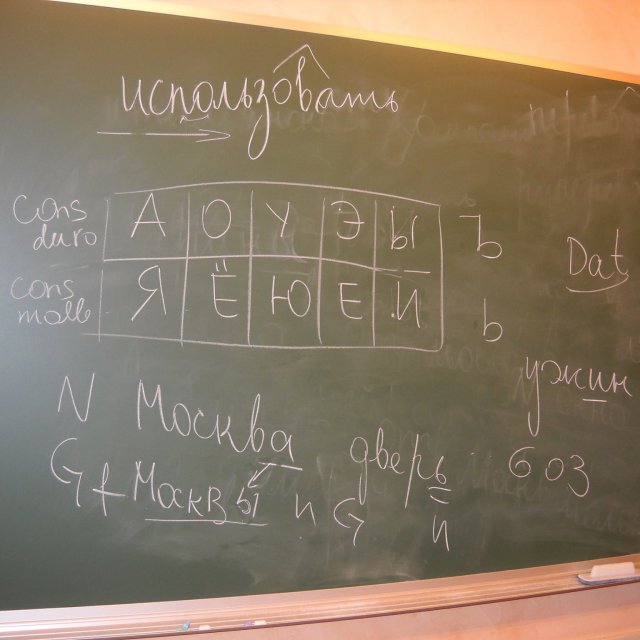 использовать
cons duro А О У Э Ы Ъ
cons molle Я Ё Ю Е Й Ь
Dat
ужин
N Москва дверь 603
G f Москвы и G й